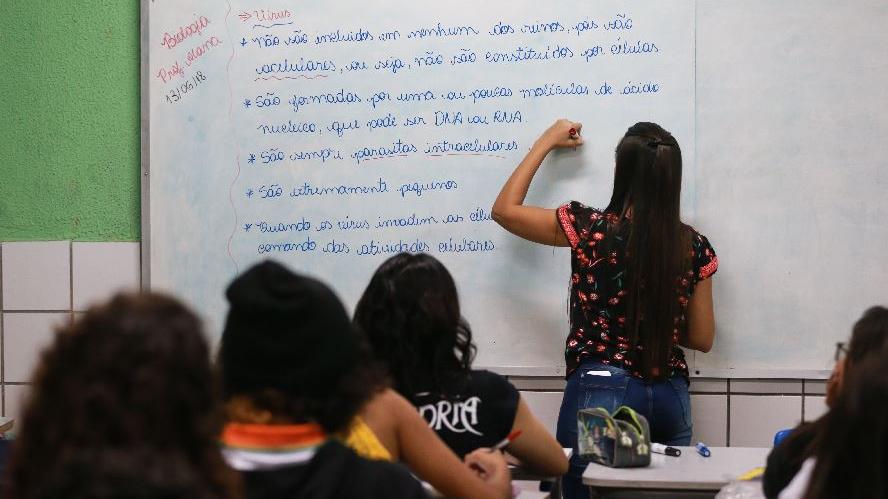 Biologia
Profª Alana
13/06/18
⇒ Vírus
* Não são incluídos em nenhum dos reinos, pois são
acelulares, ou seja, não são constituídos por células
* São formadas por uma ou poucas moléculas de ácido
nucleico, que pode ser DNA ou RNA.
* São sempre parasitas intracelulares
* São extremamente pequenos
* Quando os vírus invadem as célu
comando das atividades celulares.